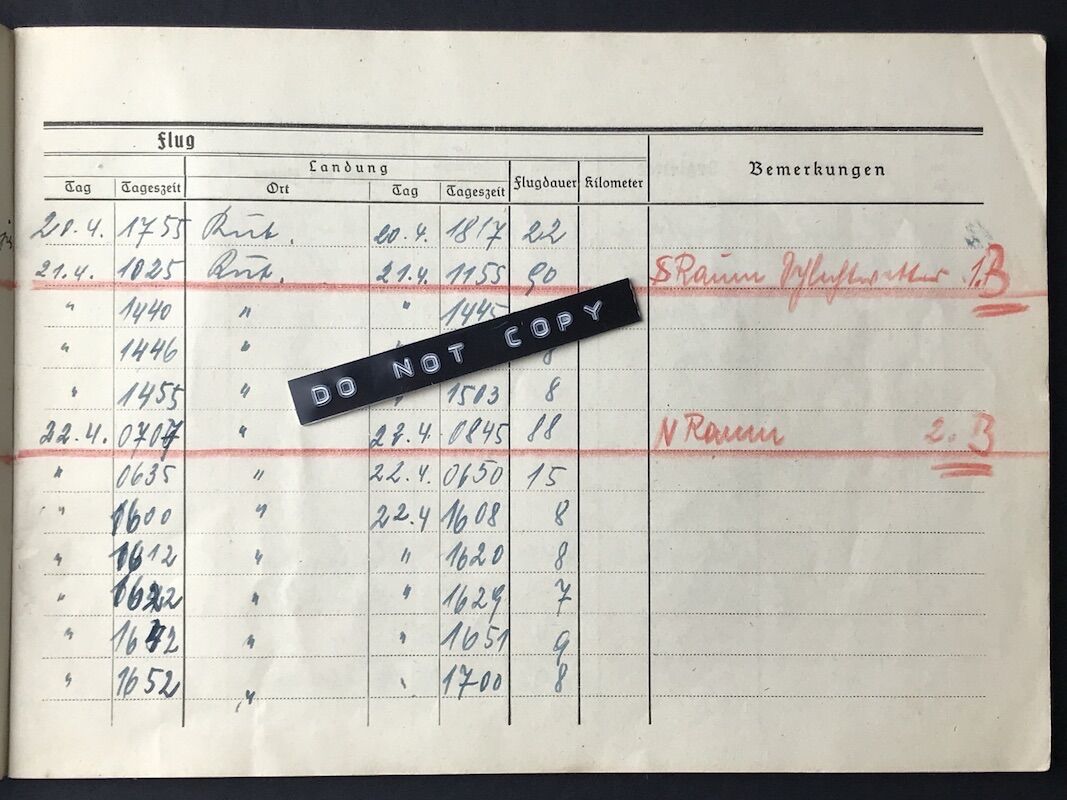 Flug
Landung Bemerkungen
Tag Tageszeit Ort Tag Tageszeit Flugdauer Kilometer
20.4. 1755 Rut. 20.4. 1817 22
21.4. 1025 Rut. 21.4. 1155 90 S Raum Schlechtwetter 1. B
" 1440 " " 1445
" 1446 " 8
" 1455 " 1503 8
22.4. 0707 " 22.4. 0845 88 N Raum 2. B
" 0635 " 22.4. 0650 15
" 1600 " 22.4 1608 8
" 1612 " " 1620 8
" 1622 " " 1629 7
" 1642 " " 1651 9
" 1652 " " 1700 8
DO NOT COPY